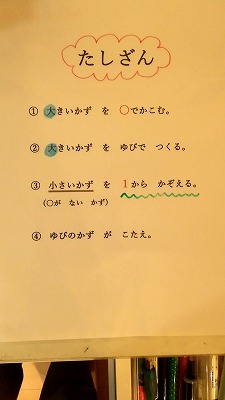 たしざん
① 大きいかず を ○でかこむ。
② 大きいかず を ゆびで つくる。
③ 小さいかず を 1から かぞえる。
(○が ない かず)
④ ゆびのかず が こたえ。